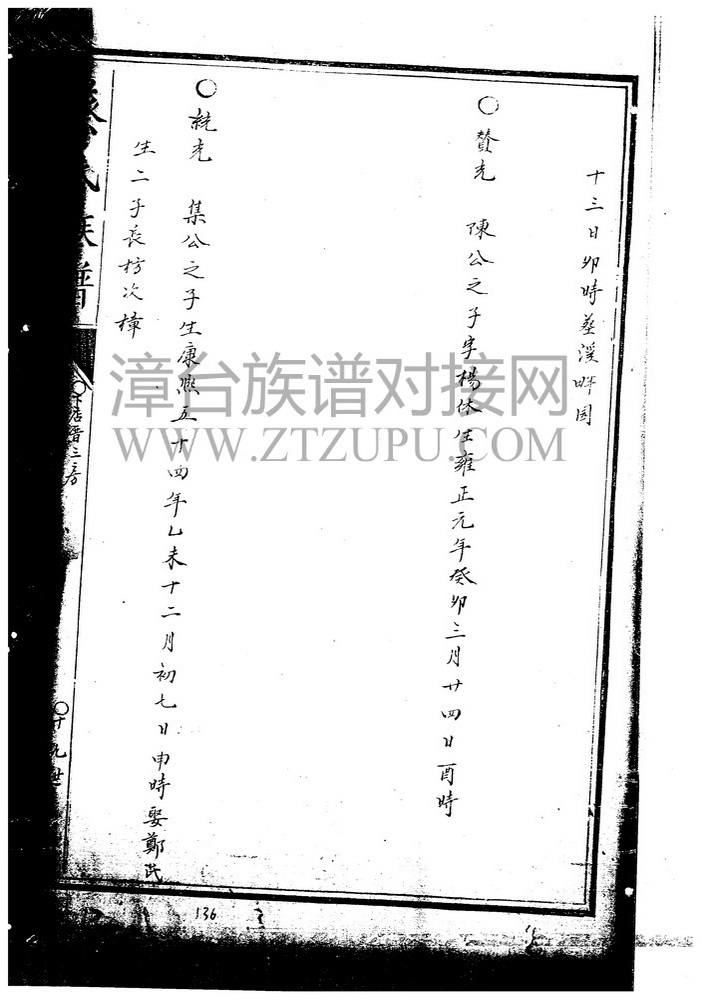 十三日卯時葬溪畔园
○贊光 陳公之子字楊休生雍正元年癸卯三月廿四日酉時
○統光 集公之子生康熙五十四年乙未十二月初七日申時娶鄭氏
生二子長枋次樟
氏族譜
三房
○十九世
136
漳台族谱对接网
WWW.ZTZUPU.COM